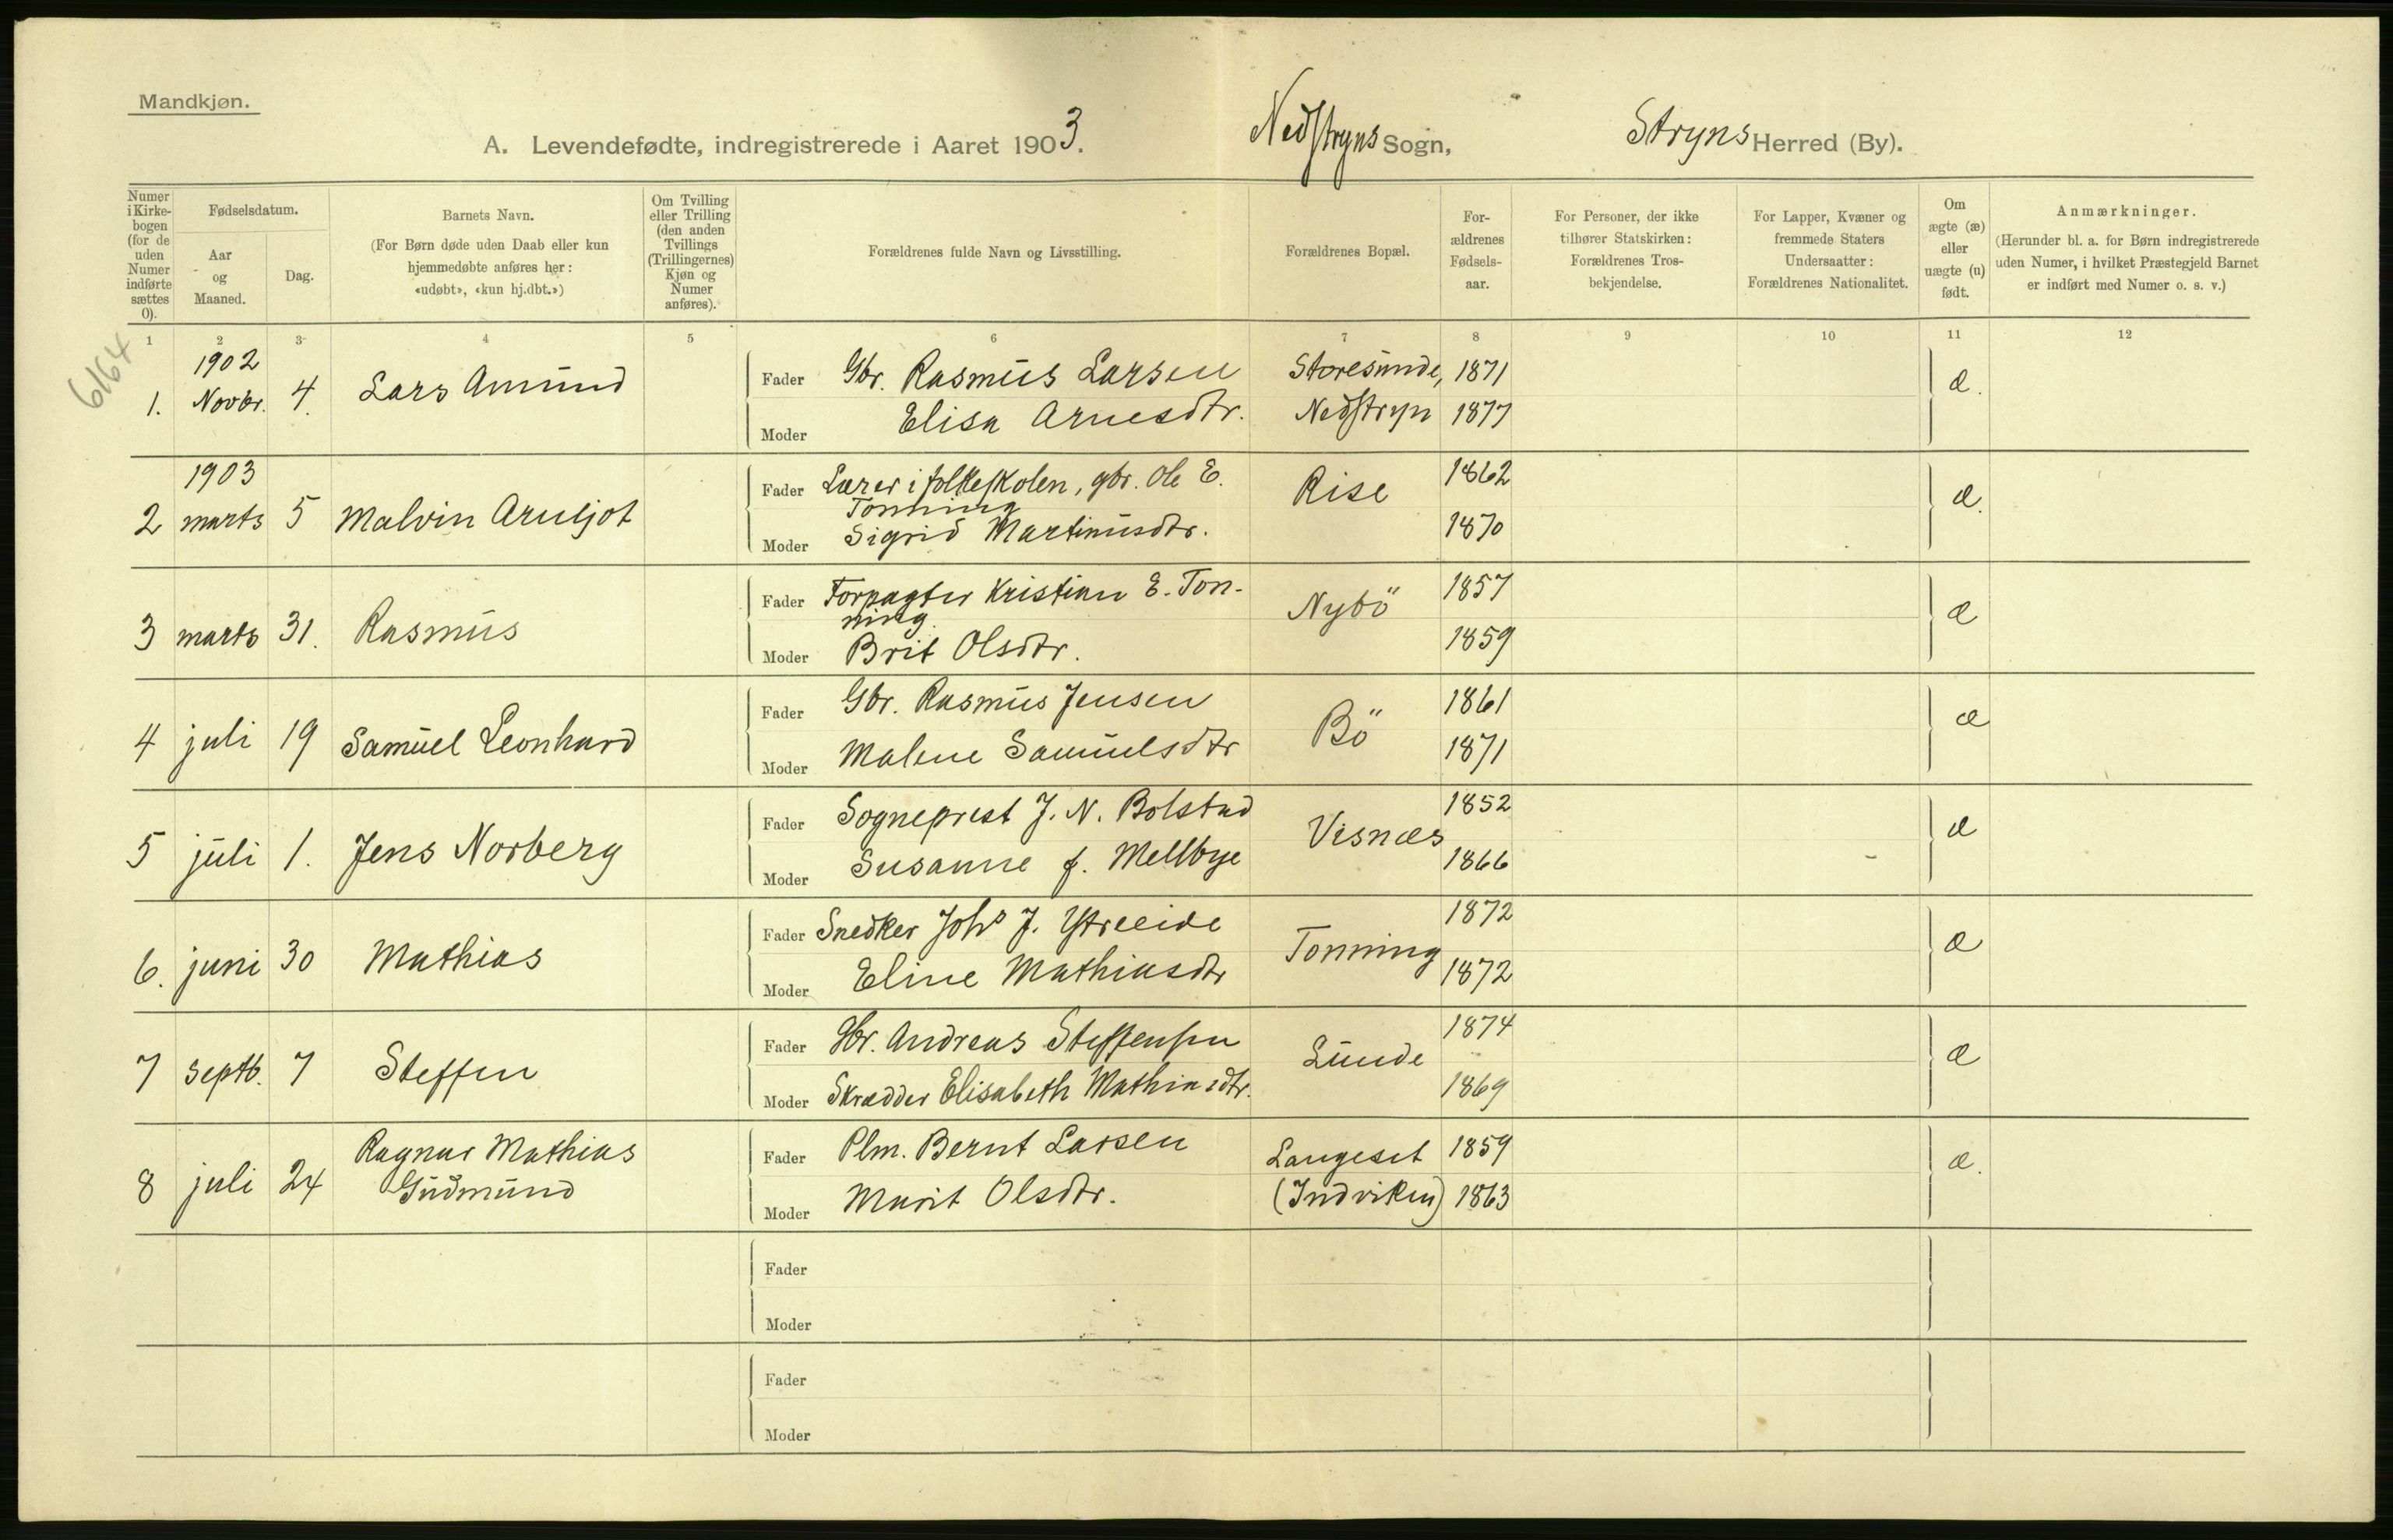 Mandkjøn.
A. Levendefødte, indregistrerede i Aaret 1903. Nedstryns Sogn, Stryns Herred (By).
Numer i Kirkebogen (for de uden Numer indførte sættes 0).
Fødselsdatum.
Aar og Maaned.
Dag.
Barnets Navn.
(For Børn døde uden Daab eller kun hjemmedøbte anføres her: «udøbt», «kun hj.dbt.»)
Om Tvilling eller Trilling (den anden Tvillings (Trillingernes) Kjøn og Numer anføres).
Forældrenes fulde Navn og Livsstilling.
Forældrenes Bopæl.
Forældrenes Fødselsaar.
For Personer, der ikke tilhører Statskirken: Forældrenes Trosbekjendelse.
For Lapper, Kvæner og fremmede Staters Undersaatter: Forældrenes Nationalitet.
Om ægte (æ) eller uægte (u) født.
Anmærkninger.
(Herunder bl. a. for Børn indregistrerede uden Numer, i hvilket Præstegjeld Barnet er indført med Numer o. s. v.)
1 2 3 4 5 6 7 8 9 10 11 12
6164
1902
1. Novbr. 4. Lars Amund Fader Gbr. Rasmus Larsen Storesunde, 1871 æ.
Moder Elisa Arnesdtr. Nedstryn 1877
1903
2 marts 5 Malvin Arnljot Fader Lærer i folkeskolen, gbr. Ole E. Rise 1862 æ.
Tonning
Moder Sigrid Martinusdtr. 1870
3 marts 31. Rasmus Fader Forpagter Kristian E. Ton- Nybö 1857 æ
ning.
Moder Brit Olsdtr. 1859
4 juli 19 Samuel Leonhard Fader Gbr. Rasmus Jensen Bö 1861 æ
Moder Malene Samuelsdtr 1871
5 juli 1. Jens Norberg Fader Sogneprest J. N. Bolstad Visnæs 1852 æ
Moder Susanne f. Mellbye 1866
6. juni 30 Mathias Fader Snedker Johs J. Ytreeide Tonning 1872 æ
Moder Eline Mathiasdtr 1872
7 septb. 7 Steffen Fader Gbr. Andreas Steffensen Lunde 1874 æ
Moder Skrædder Elisabeth Mathiasdtr. 1869
8 juli 24 Ragnar Mathias Gudmund Fader Plm. Bernt Larsen Langeset 1859 æ.
Moder Marit Olsdtr. (Indviken) 1863
Fader
Moder
Fader
Moder